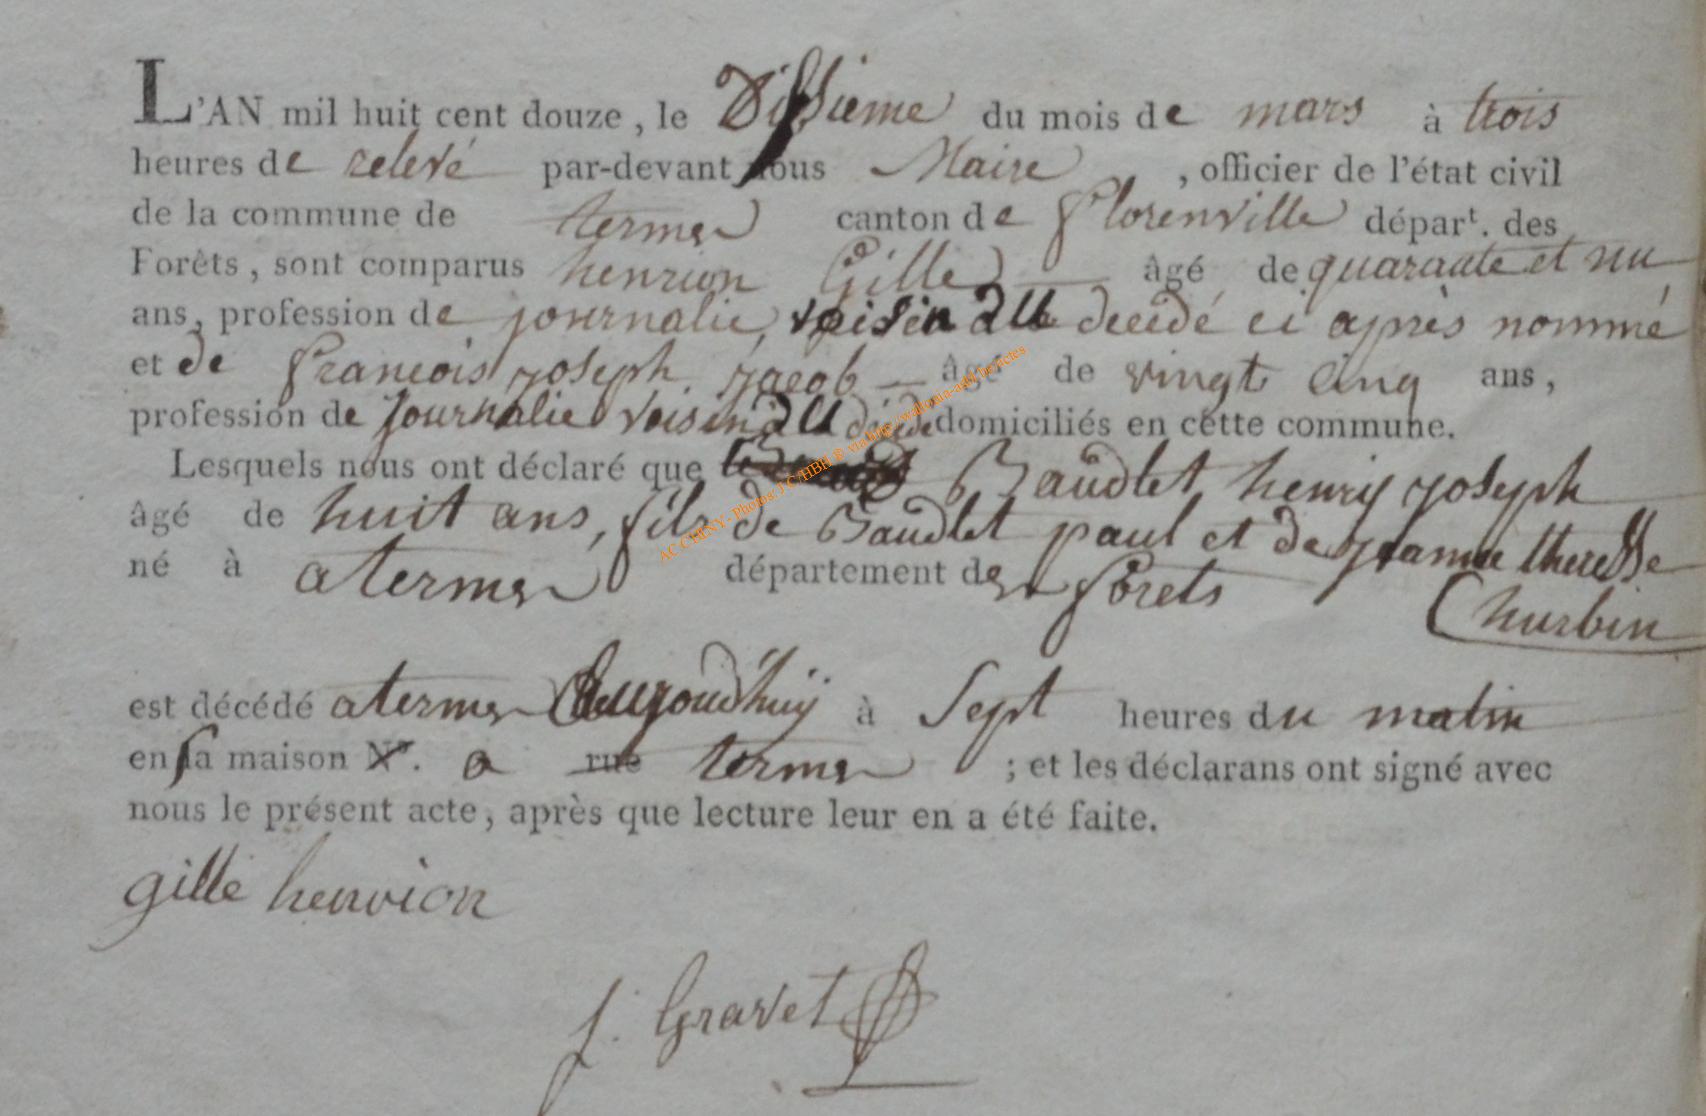 L'AN mil huit cent douze, le Dissieme du mois de mars à trois
heures de relevé par-devant nous Maire, officier de l'état civil
de la commune de termes canton de florenville départ. des
Forêts, sont comparus henrion Gille âgé de quarante et un
ans, profession de journalie, voisin du decedé ci après nommé
et de francois joseph jacob âgé de vingt cinq ans,
profession de journalie voisin du décédé domiciliés en cette commune.
Lesquels nous ont déclaré que Baudlet henry joseph
âgé de huit ans, fils de Baudlet paul et de jeanne theresse
né à a termes département des forets Churbin
est décédé a termes aujourd'huy à Sept heures du matin
en sa maison N°. a rue termes ; et les déclarans ont signé avec
nous le présent acte, après que lecture leur en a été faite.
gille henrion
f. Gravet
AC CHINY - Photos: J C/HBH ® via http://wallonia-asbl.be/actes